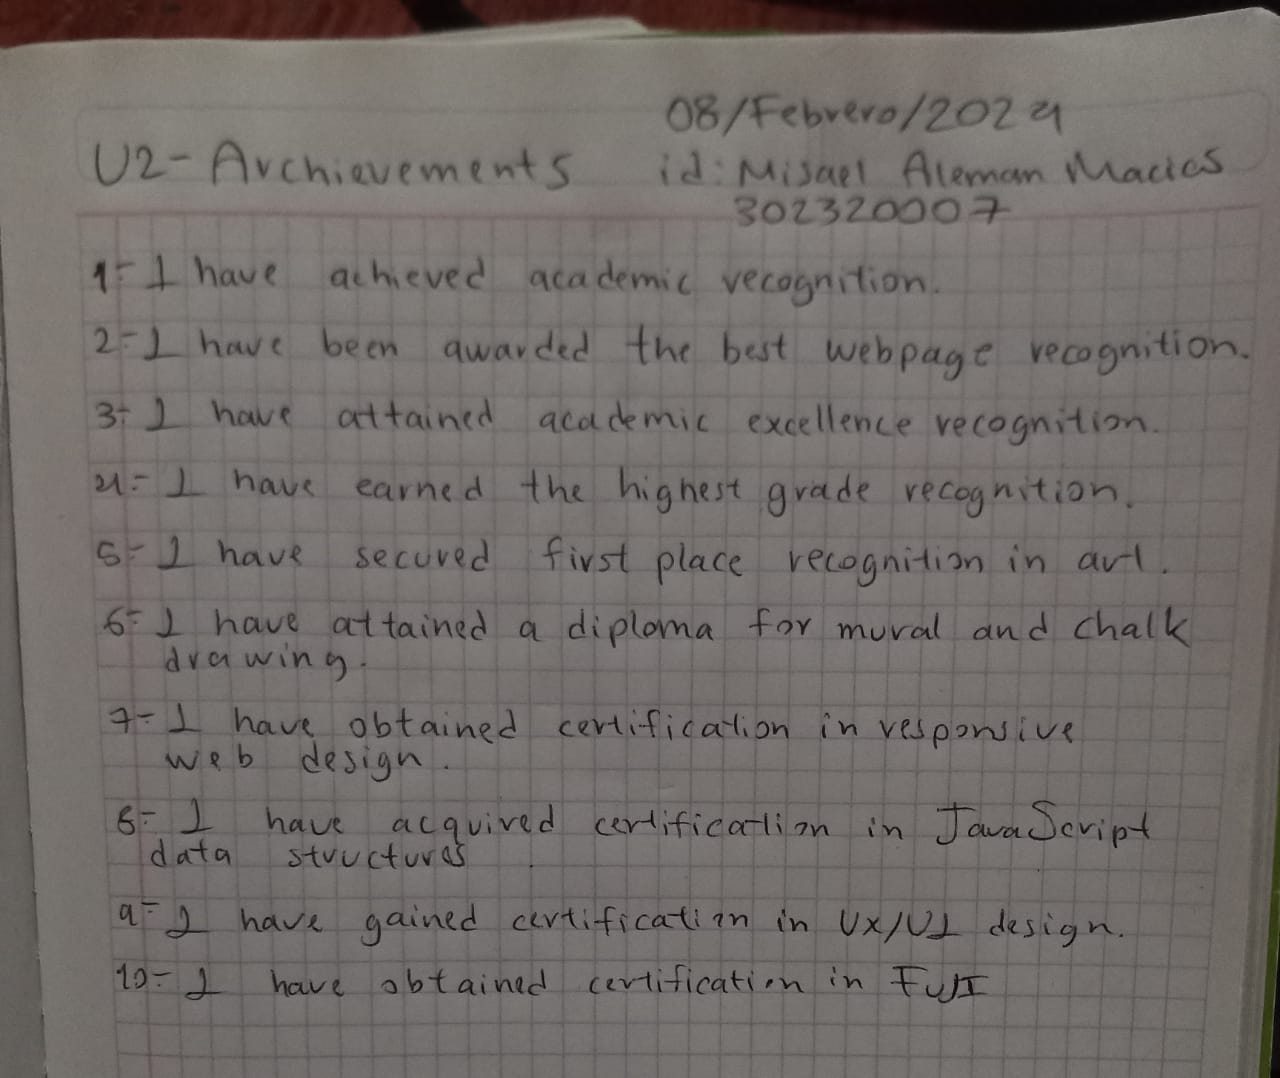 08/Febrero/2024
U2-Archievements id: Misael Aleman Macias
302320007
1- I have achieved academic recognition.
2- I have been awarded the best webpage recognition.
3- I have attained academic excellence recognition.
4- I have earned the highest grade recognition.
5- I have secured first place recognition in art.
6- I have attained a diploma for mural and chalk
drawing.
7- I have obtained certification in responsive
web design.
8- I have acquired certification in JavaScript
data structures
9- I have gained certification in UX/UI design.
10- I have obtained certification in